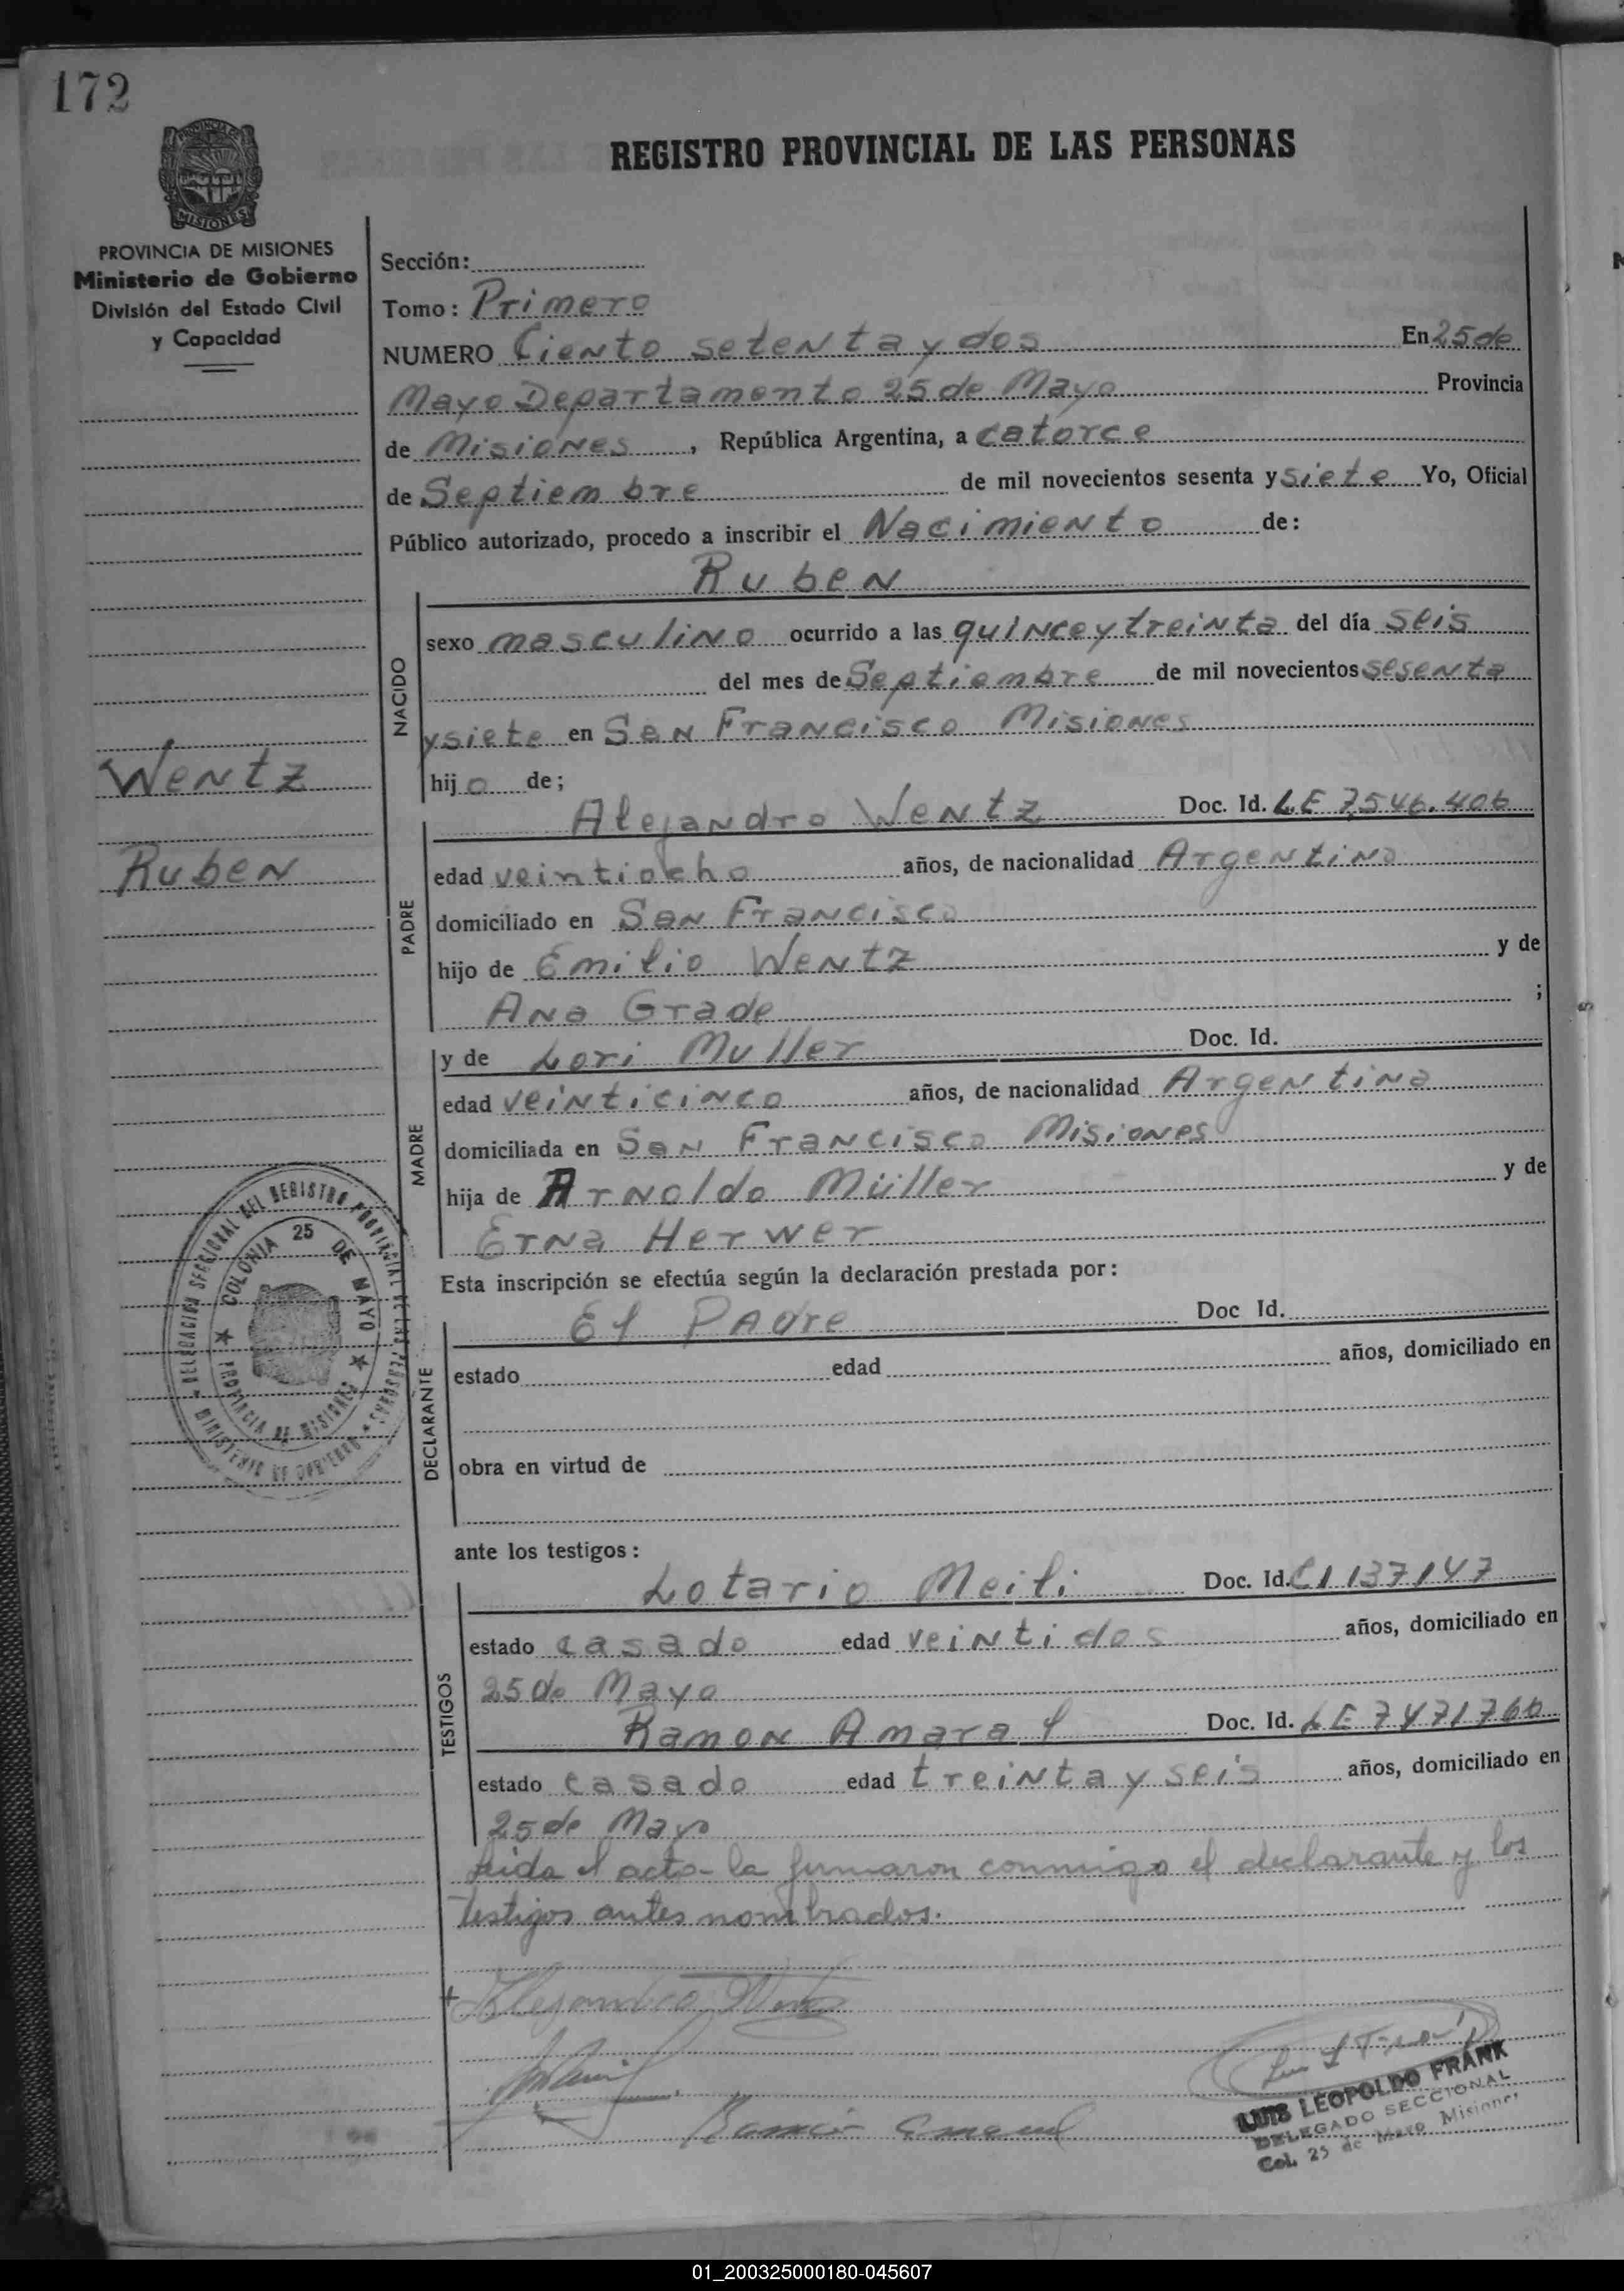 172
REGISTRO PROVINCIAL DE LAS PERSONAS
PROVINCIA DE
MISIONES
PROVINCIA DE MISIONES
Ministerio de Gobierno
División del Estado Civil
y Capacidad
Sección:
Tomo: Primero
NUMERO Ciento setenta y dos En 25 de
Mayo Departamento 25 de Mayo Provincia
de Misiones, República Argentina, a catorce
de Septiembre de mil novecientos sesenta y siete Yo, Oficial
Público autorizado, procedo a inscribir el Nacimiento de:
Ruben
NACIDO
sexo masculino ocurrido a las quince y treinta del día seis
del mes de Septiembre de mil novecientos sesenta
y siete en San Francisco Misiones
hijo de;
Wentz
Ruben
PADRE
Alejandro Wentz Doc. Id. LE 7.546.406
edad veintiocho años, de nacionalidad Argentino
domiciliado en San Francisco
hijo de Emilio Wentz y de
Ana Grade ;
MADRE
y de Lori Muller Doc. Id.
edad veinticinco años, de nacionalidad Argentina
domiciliada en San Francisco Misiones
hija de Arnoldo Müller y de
Erna Herwer
Esta inscripción se efectúa según la declaración prestada por:
DECLARANTE
El Padre Doc Id.
estado edad años, domiciliado en
obra en virtud de
DELEGACION SECCIONAL DEL REGISTRO PROVINCIAL DE LAS PERSONAS
MINISTERIO DE GOBIERNO
COLONIA 25 DE MAYO
PROVINCIA DE MISIONES
ante los testigos:
TESTIGOS
Lotario Meili Doc. Id. CI 137147
estado casado edad veintidos años, domiciliado en
25 de Mayo
Ramon Amaral Doc. Id. LE 7471760
estado casado edad treinta y seis años, domiciliado en
25 de Mayo
Leida el acta la firmaron conmigo el declarante y los
testigos antes nombrados.
Alejandro Wentz
Ramón Amaral
LUIS LEOPOLDO FRANK
DELEGADO SECCIONAL
Col. 25 de Mayo Misiones
01_200325000180-045607